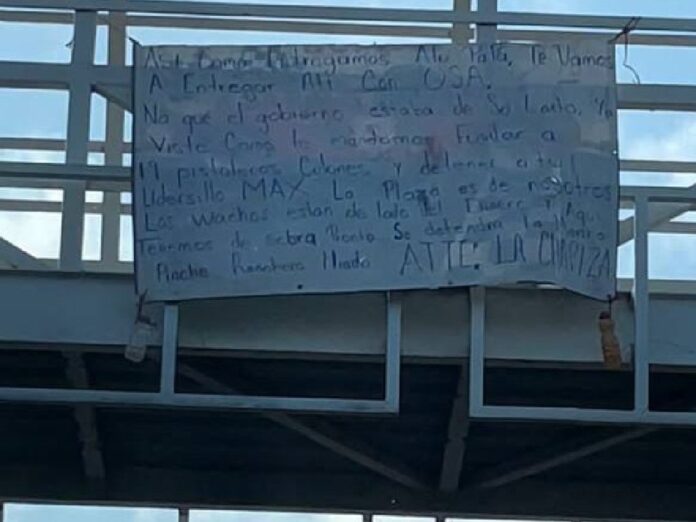 Así Como Entregamos A tu Papá, Te Vamos
A Entregar A ti Con USA.
No que el gobierno estaba de Su Lado, Ya
Viste Como le mandamos Fusilar a
19 pistoleros Culones y detener a tu
Lidersillo MAX La Plaza es de nosotros
Los Wachos estan de lado del Dinero Y Aqui
Tenemos de sobra Pronto Se detendra
Pinche Ranchero Miado ATTE: LA CHAPIZA